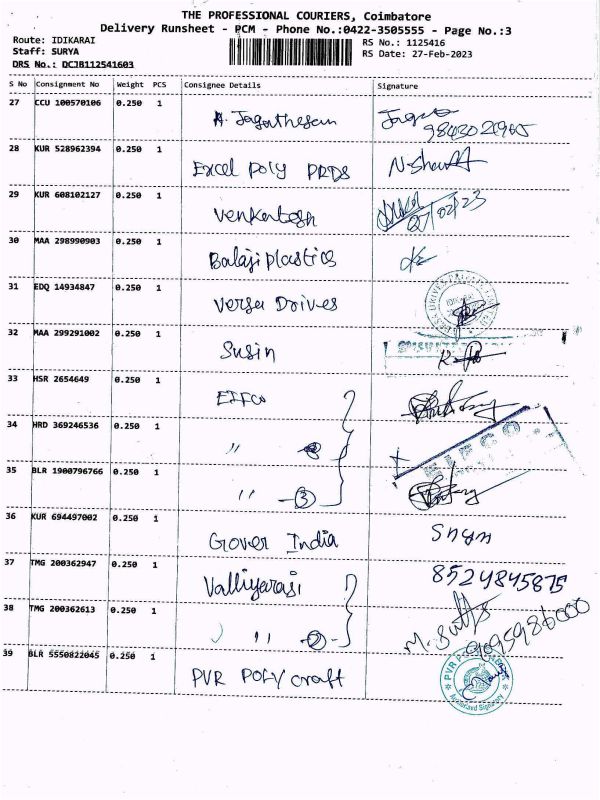 THE PROFESSIONAL COURIERS, Coimbatore
Delivery Runsheet - PCM - Phone No.:0422-3505555 - Page No.:3
Route: IDIKARAI
Staff: SURYA
DRS No.: DCJB112541603
RS No.: 1125416
RS Date: 27-Feb-2023
S No Consignment No Weight PCS Consignee Details Signature
27 CCU 100570106 0.250 1 A. Jagatheesan
28 KUR 528962394 0.250 1 Excel Poly PRDS
29 KUR 608102127 0.250 1 Venkatesh 27/02/23
30 MAA 298990903 0.250 1 Balaji plastics
31 EDQ 14934847 0.250 1 Versa Drives
32 MAA 299291002 0.250 1 Susin
33 HSR 2654649 0.250 1 EIFCO
34 HRD 369246536 0.250 1 "
35 BLR 1900796766 0.250 1 " - 3
36 KUR 694497002 0.250 1 Grover India
37 TMG 200362947 0.250 1 Valliyarasi 8524845875
38 TMG 200362613 0.250 1 " - 2
39 BLR 5550822045 0.250 1 PVR POLY craft